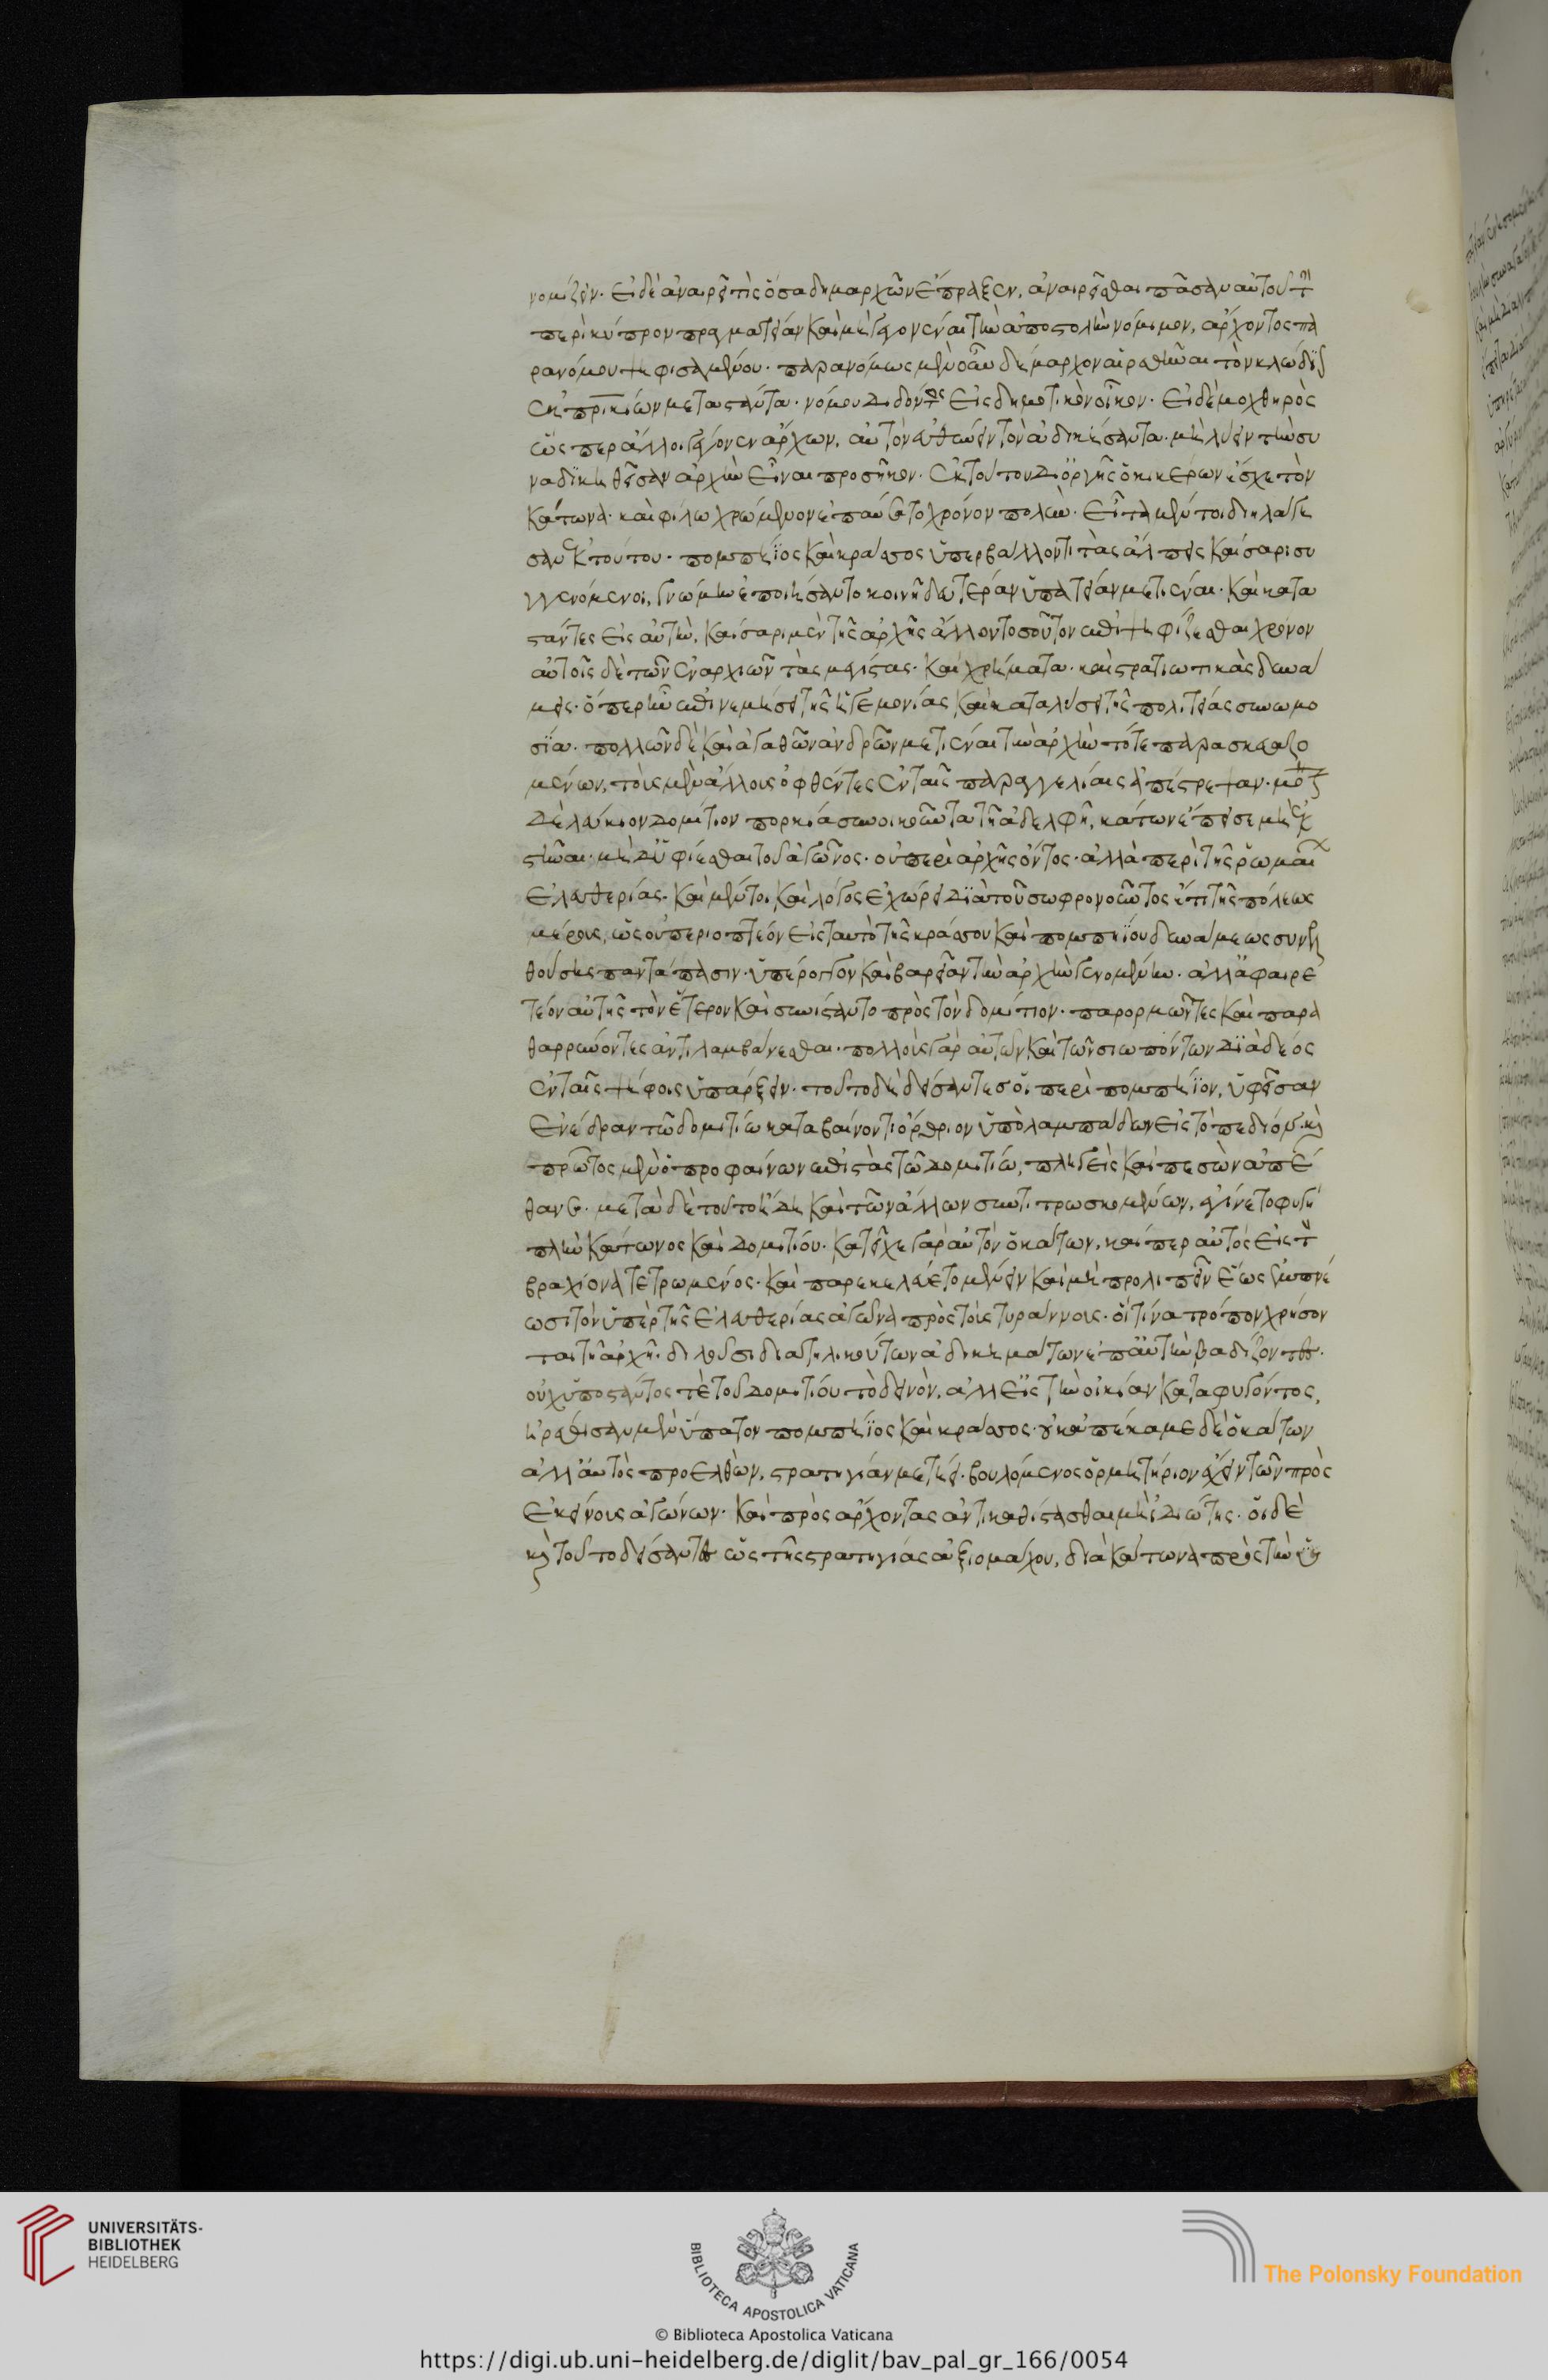 νομίζειν· εἰ δὲ ἀναιρεῖ τὶς ὅσα δημαρχῶν ἔπραξεν, ἀναιρεῖσθαι πᾶσαν αὐτοῦ τὴν
περὶ κύπρον πραγματείαν καὶ μὴ γεγονέναι τὴν ἀποστολὴν νόμιμον, ἄρχοντος πα
ρανόμου ψηφισαμένου· παρανόμως μὲν οὖν δήμαρχον αἱρεθῆναι τὸν κλώδιον
ἐκ πρικίων μεταστάντα· νόμου διδόντος εἰς δημοτικὸν οἶκον· εἰ δὲ μοχθηρὸς
ὥσπερ ἄλλοι γέγονεν ἄρχων, αὐτὸν εὐθύνειν τὸν ἀδικήσαντα· μὴ λύειν τὴν συ
ναδικηθεῖσαν ἀρχὴν εἶναι προσῆκον· ἐκ τούτου δι ὀργῆς ὁ κικέρων ἔσχε τὸν
κάτωνα· καὶ φίλω χρώμενον ἐπαύετο χρόνον πολὺν· εἶτα μέντοι διηλλάγη
σαν ἐκ τούτου· πομπήϊος καὶ κράσσος ὑπερβαλλοντι τὰς ἄλπεις καίσαρι συ
γγενόμενοι, γνώμην ἐποιήσαντο κοινῆ δευτέραν ὑπατείαν μετιέναι· καὶ κατα
στάντες εἰς αὐτὴν, καίσαρι μὲν τῆς ἀρχῆς ἄλλον τοσοῦτον ἐπιψηφίζεσθαι χρόνον
αὐτοῖς δὲ τῶν ἐπαρχιῶν τὰς μεγίστας· καὶ χρήματα· καὶ στρατιωτικὰς δυνά
μεις· ὅπερ ἦν ἐπὶ νεμήσει τῆς ἡγεμονίας καὶ καταλύσει τῆς πολιτείας συνωμο
σία· πολλῶν δὲ καὶ ἀγαθῶν ἀνδρῶν μετιέναι τὴν ἀρχὴν τότε παρασκευαζο
μένων, τοὺς μὲν ἄλλους ὀφθέντες ἐν ταῖς παραγγελίαις ἀπέστρεψαν· μόνον
δὲ λεύκιον δομίτιον πορκία συνοικοῦντα τῆ ἀδελφῆ, κάτων ἔπεισε μὴ ἐκ
στῆναι· μὴ δ' ὑφίεσθαι τοῦ ἀγῶνος· οὐ περὶ ἀρχῆς ὄντος· ἀλλὰ περὶ τῆς ῥωμαίων
ἐλευθερίας· καὶ μέντοι καὶ λόγος ἐχώρει διὰ τοῦ σωφρονοῦντος ἔτι τῆς πόλεως
μέρους, ὡς οὐ περιοπτέον εἰς ταυτὸ τῆς κράσσου καὶ πομπηίου δυνάμεως συνελ
θούσης παντάπασιν· ὑπέρογκον καὶ βαρεῖαν τὴν ἀρχὴν γενομένην· ἀλλ ἀφαιρε
τέον αὐτῆς τὸν ἕτερον καὶ συνίσταντο πρὸς τὸν δομίτιον· παρορμῶντες καὶ παρα
θαρρύνοντες ἀντιλαμβάνεσθαι· πολλοὺς γὰρ αὐτῶν καὶ τῶν σιωπόντων διὰ δέος
ἐν ταῖς ψήφοις ὑπάρξειν· τοῦτο δὴ δείσαντες οἱ περὶ πομπήϊον, ὑφεῖσαν
ἐνέδραν τῶ δομιτίω καταβαίνοντι ὄρθριον ὑπὸ λαμπάδων εἰς τὸ πεδίον· καὶ
πρῶτος μὲν ὁ προφαίνων ἐπιστὰς τῶ δομιτίω, πληγεὶς καὶ πεσὼν ἀπέ
θανε· μετὰ δὲ τοῦτο ἤδη καὶ τῶν ἄλλων συντιτρωσκομένων, ἐγίνετο φυγὴ
πλὴν κάτωνος καὶ δομιτίου· κατεῖχε γὰρ αὐτὸν ὁ κάτων, καίπερ αὐτὸς εἰς τὸν
βραχίονα τετρωμένος· καὶ παρεκελεύετο μένειν καὶ μὴ προλιπεῖν ἕως ἐμπνέ
ωσι τὸν ὑπὲρ τῆς ἐλευθερίας ἀγῶνα πρὸς τοὺς τυράννους· οἳ τίνα τρόπον χρήσον
ται τῆ ἀρχῆ δηλοῦσι δια τηλικούτων ἀδικημάτων ἐπ αὐτὴν βαδίζοντες·
οὐχ ὑποστάντος τὲ τοῦ δομιτίου τὸ δεινὸν, ἀλλ εἰς τὴν οἰκίαν καταφυγόντος,
ἡρέθησαν μὲν ὕπατοι πομπήϊος καὶ κράσσος· οὐκ ἀπέκαμε δὲ ὁ κάτων
ἀλλ αὐτὸς προελθὼν, στρατηγίαν μετήει· βουλόμενος ὁρμητήριον ἔχειν τῶν πρὸς
ἐκείνους ἀγώνων· καὶ πρὸς ἄρχοντας ἀντικαθίστασθαι μὴ ἰδιώτης· οἱ δὲ
καὶ τοῦτο δείσαντες ὡς τῆς στρατηγίας ἀξιομάχου, διὰ κάτωνα πρὸς τὴν ὑπ
UNIVERSITÄTS-
BIBLIOTHEK
HEIDELBERG
BIBLIOTECA APOSTOLICA VATICANA
The Polonsky Foundation
© Biblioteca Apostolica Vaticana
https://digi.ub.uni-heidelberg.de/diglit/bav_pal_gr_166/0054